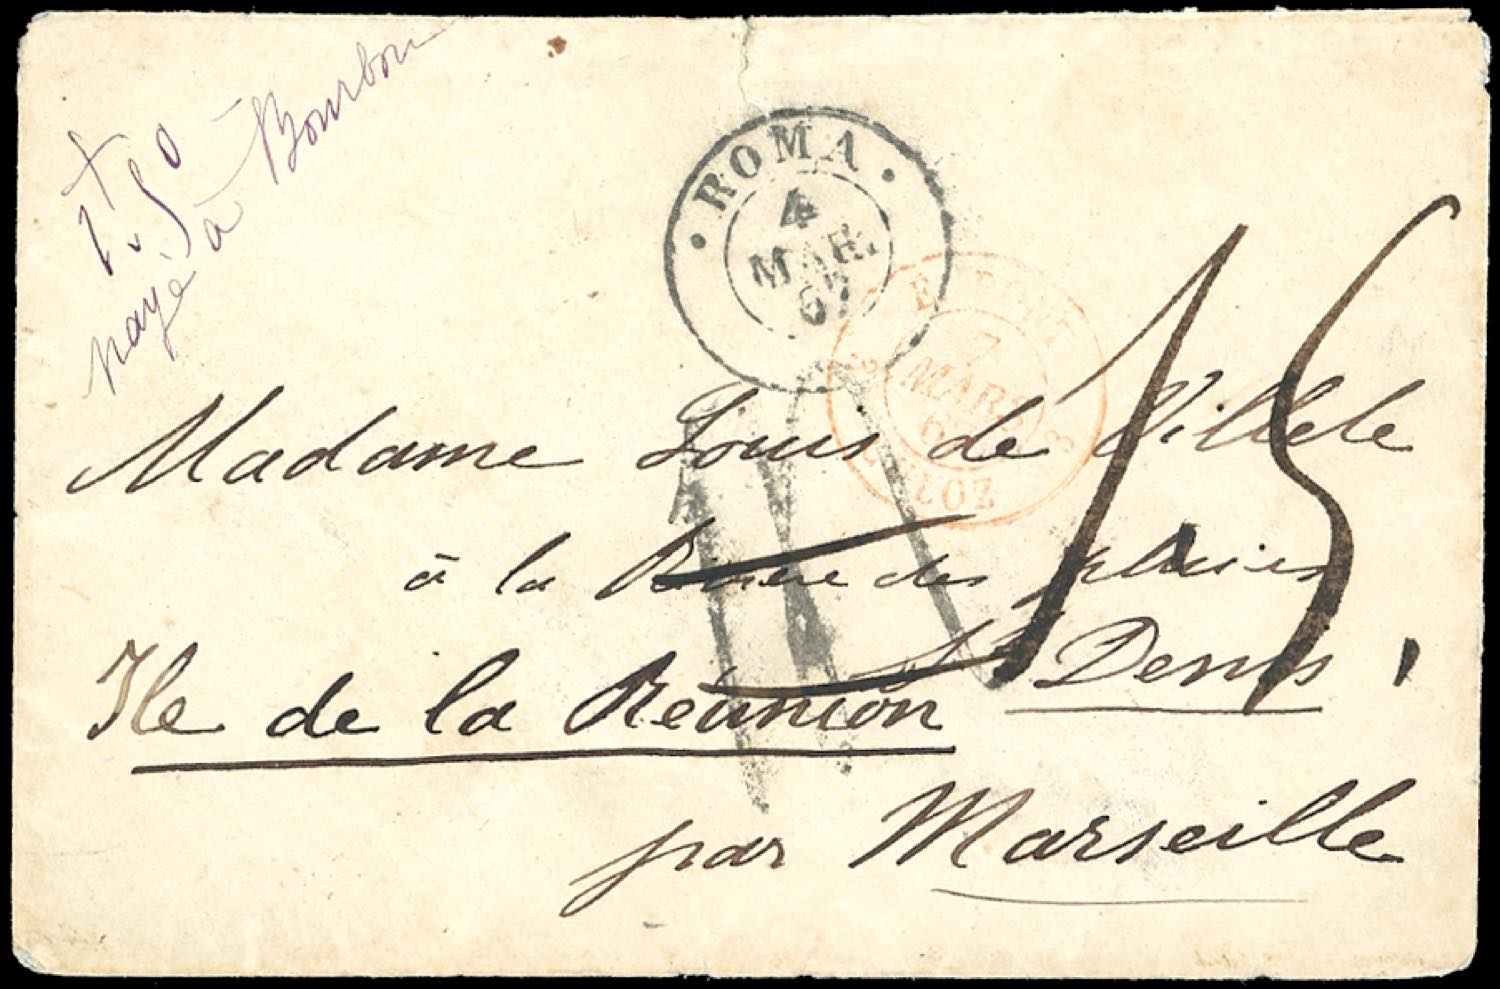 1,50
payé à Bourbon
ROMA
4
MAR.
67
7
MARS
15
Madame Louis de Villele
à la Rivière des pluies
St Denis
Ile de la Réunion
par Marseille